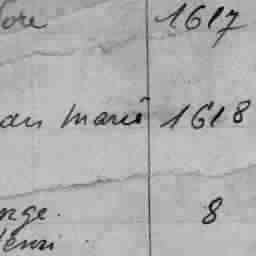 ore 1617
an marié 1618
nge. 8
Henri